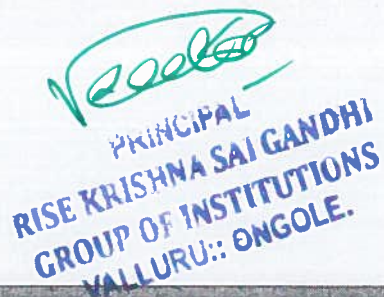 PRINCIPAL
RISE KRISHNA SAI GANDHI
GROUP OF INSTITUTIONS
VALLURU:: ONGOLE.